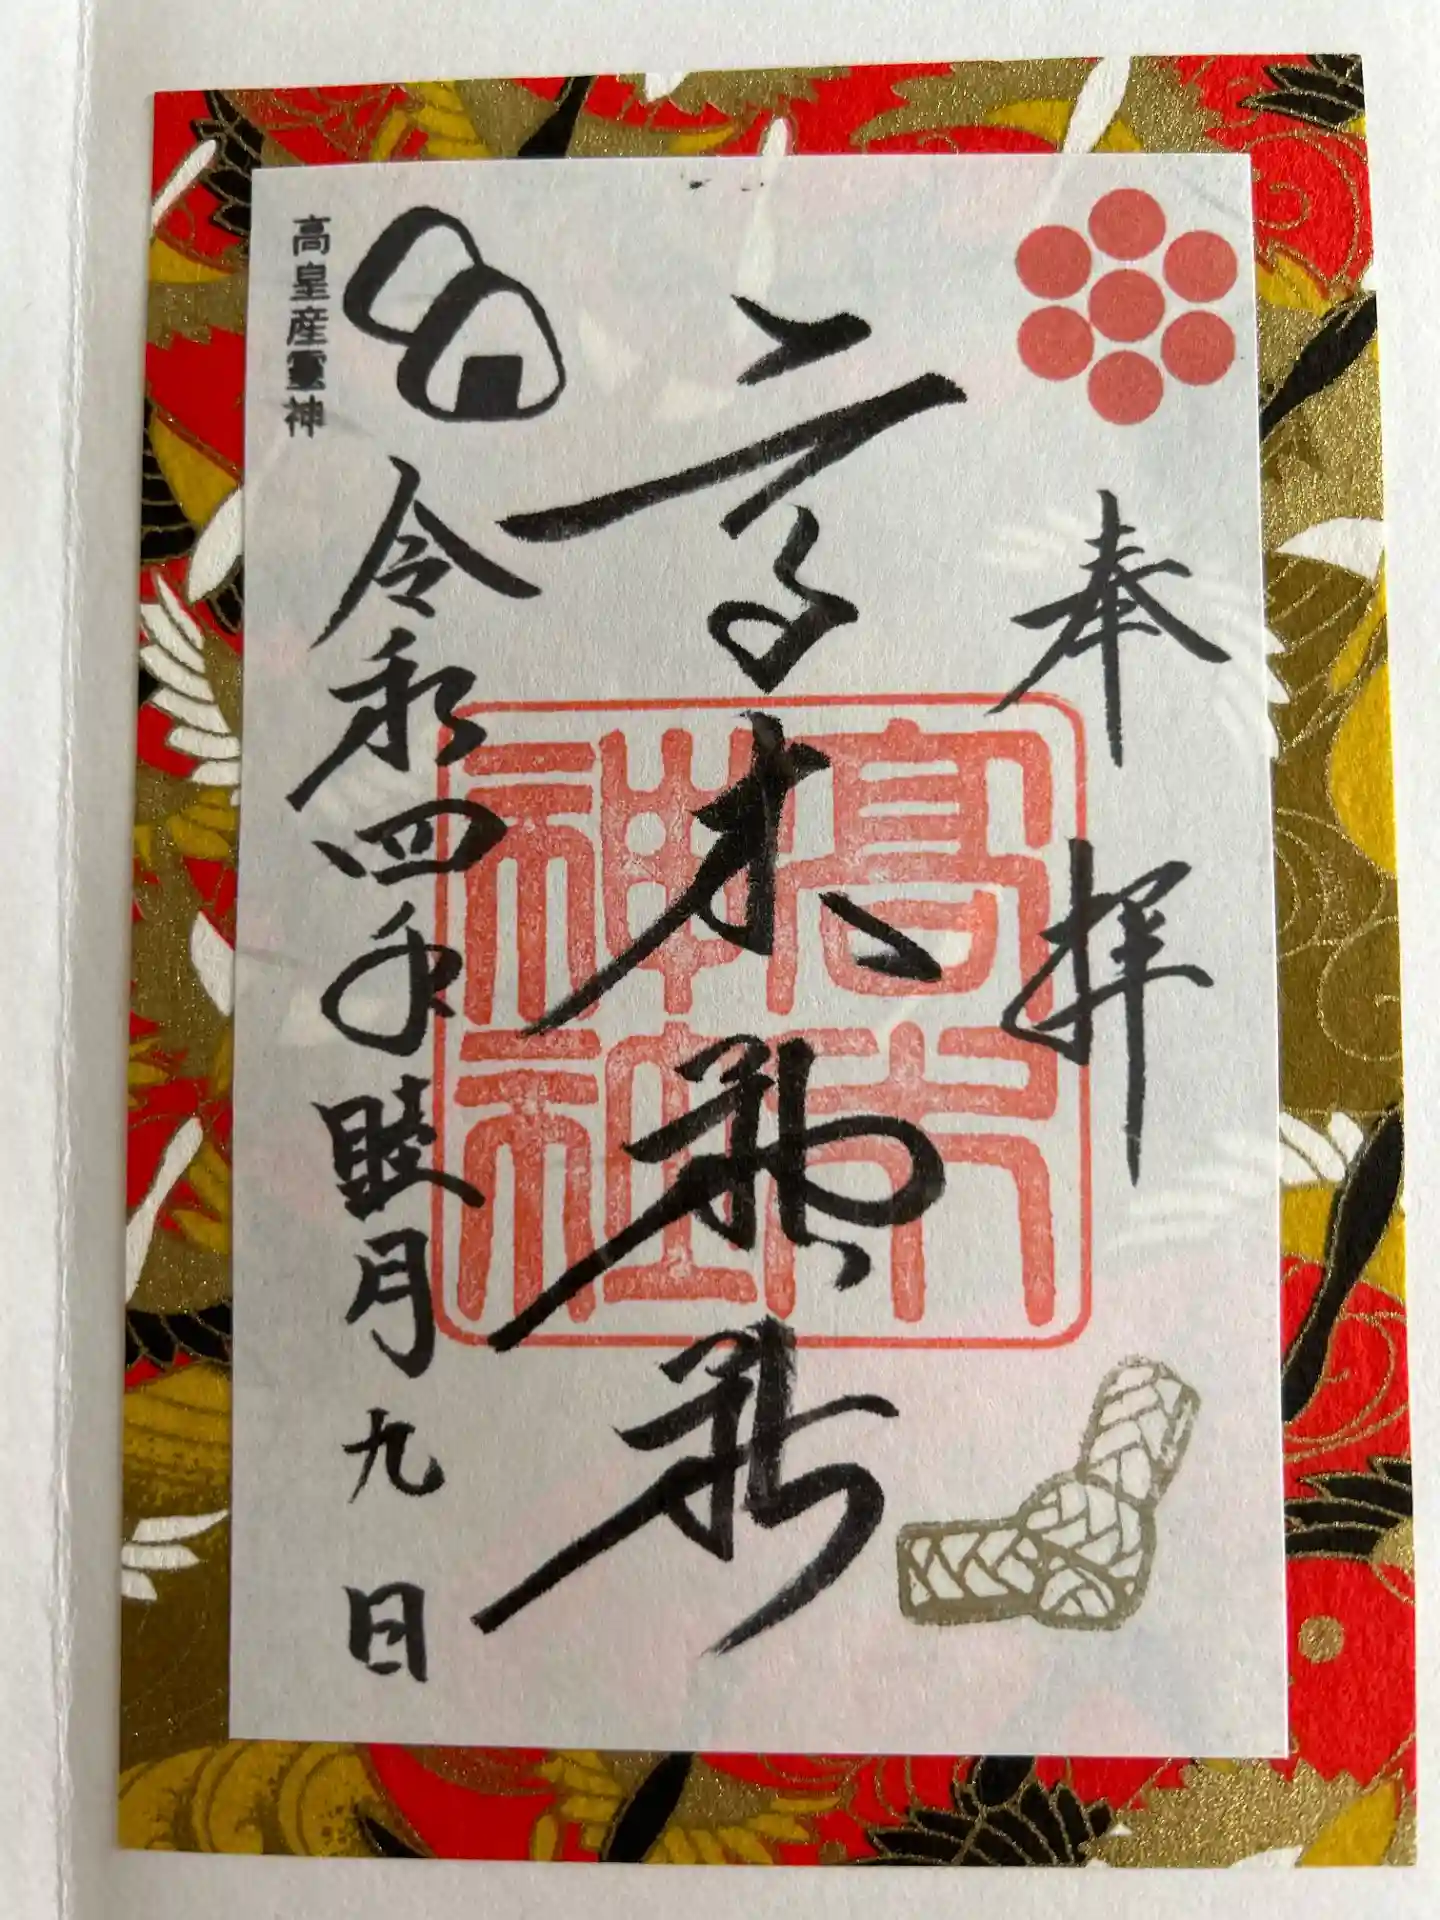 奉拝
高木神社
高木神社
高皇産霊神
令和四年睦月九日